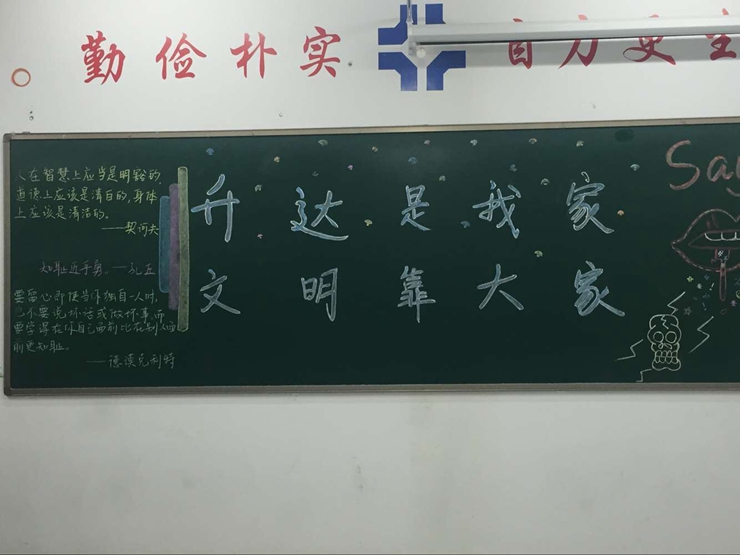 勤俭朴实
自力更生
人在智慧上应当是明豁的,
道德上应该是清白的,身体
上应该是清洁的。
——契诃夫
知耻近乎勇。——孔丘
要留心,即使当你独自一人时,
也不要说坏话或做坏事,而
要学得在你自己面前比在别人面
前更知耻。
——德谟克利特
升达是我家
文明靠大家
Say